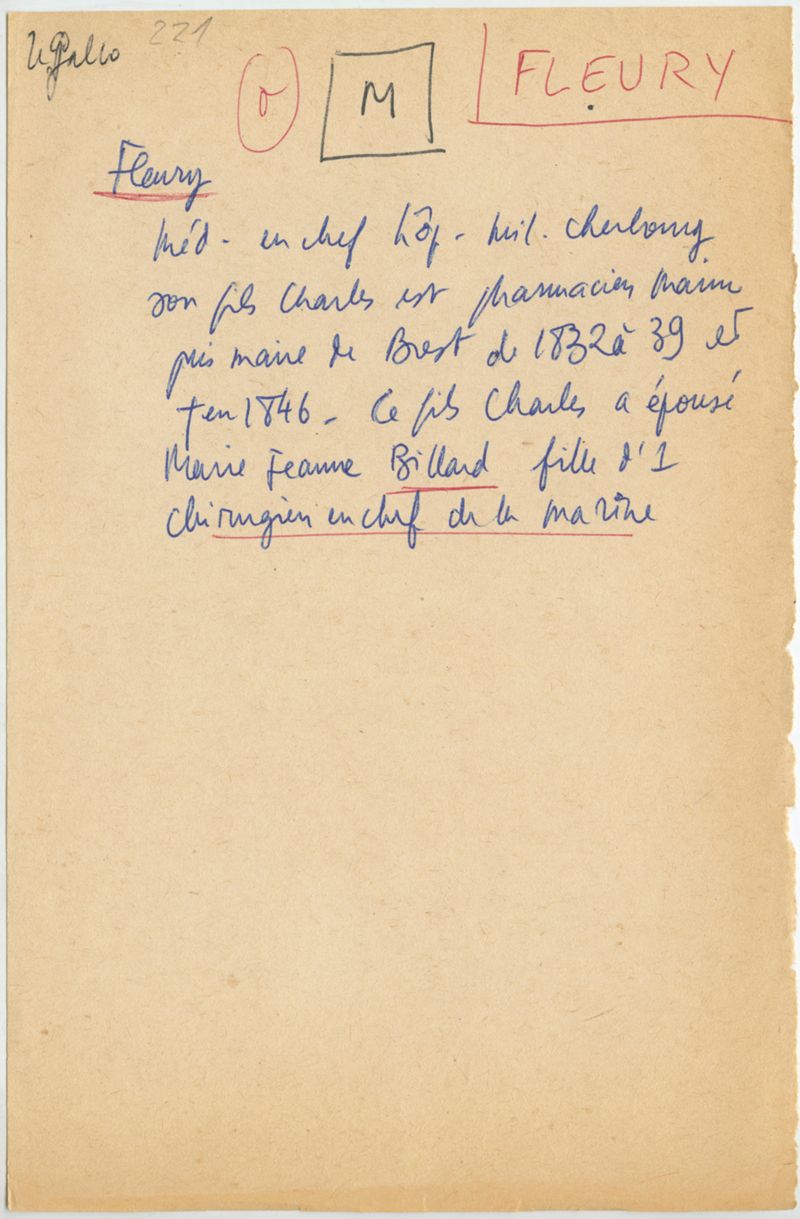 Le Gallo 221
σ M FLEURY
Fleury
Méd. en chef hôp. mil. Cherbourg
son fils Charles est pharmacien Marine
puis maire de Brest de 1832 à 39 et
† en 1846. Ce fils Charles a épousé
Marie Jeanne Billard fille d'1
chirurgien en chef de la marine